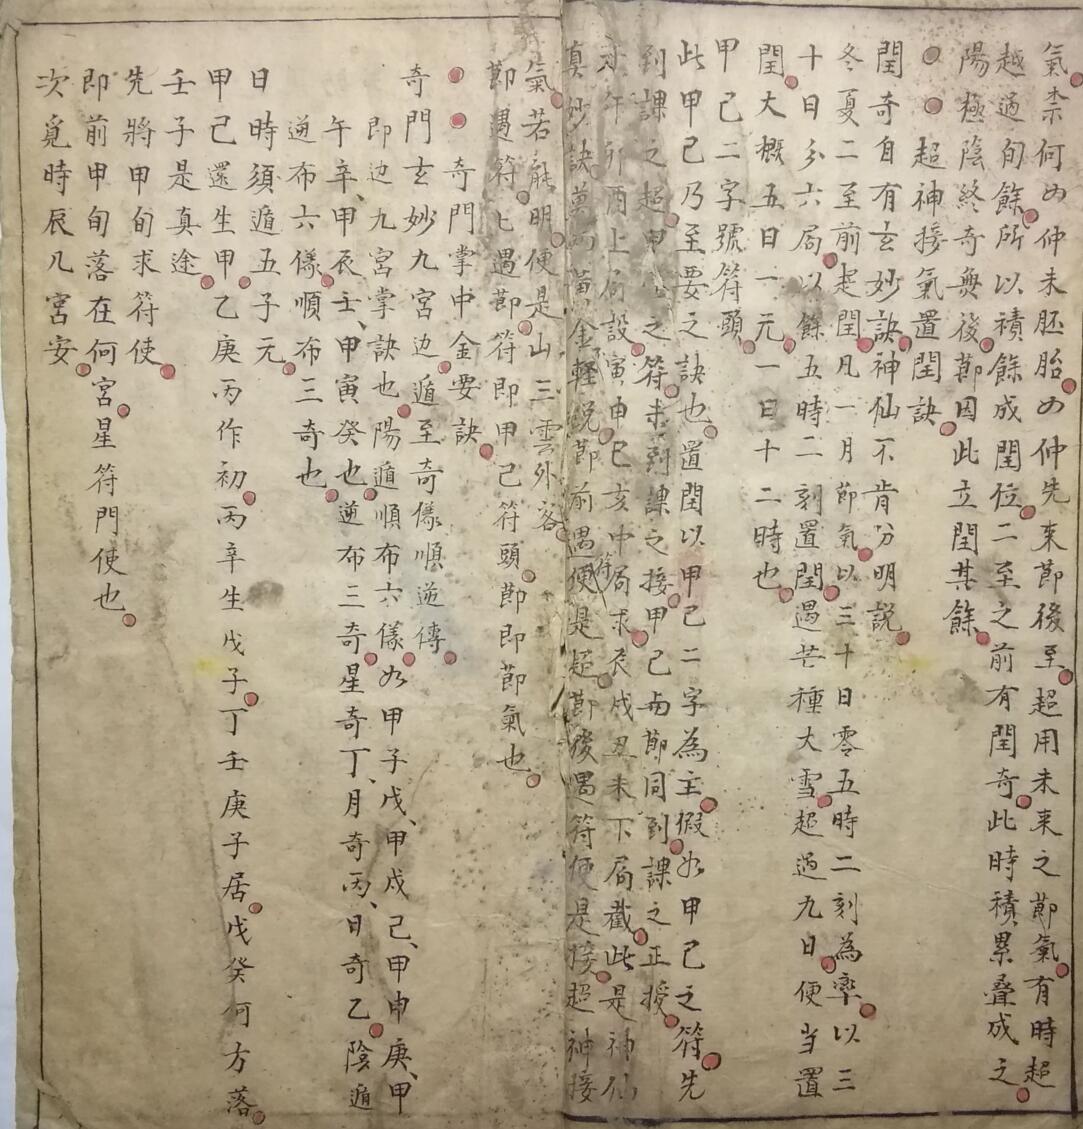 氣柰何如仲未胚胎如仲先來節後至超用未来之節氣有時超
越過旬餘所以積餘成閏位二至之前有閏奇此時積累叠成之
陽極陰終奇與後節因此立閏其餘
超神接氣置閏訣
閏奇自有玄妙訣神仙不肯分明説
冬夏二至前起閏凡一月節氣以三十日零五時二刻為率以三
十日分六局以餘五時二刻置閏遇芒種大雪超過九日便当置
閏大概五日一元一日十二時也
甲己二字號符頭
此甲己乃至要之訣也置閏以甲己二字為主假如甲己之符先
到課之超甲己之符未到課之接甲己与節同到課之正授
子午卯酉上局設寅申巳亥中局求辰戌丑未下局截此是神仙
真妙訣萬両黄金不輕説節前遇符便是超節後遇符便是接超神接
氣若能明便是山三雲外客
節遇符匕遇節符即甲己符頭節即節氣也
奇門掌中金要訣
奇門玄妙九宮边遁至奇儀順逆傳
即边九宮掌訣也陽遁順布六儀如甲子戊、甲戌己、甲申庚、甲
午辛、甲辰壬、甲寅癸也逆布三奇星奇丁、月奇丙、日奇乙陰遁
逆布六儀順布三奇也
日時須遁五子元
甲己還生甲乙庚丙作初丙辛生戊子丁壬庚子居戊癸何方落
壬子是真途
先將甲旬求符使
即前甲旬落在何宮星符門使也
次覓時辰几宮安